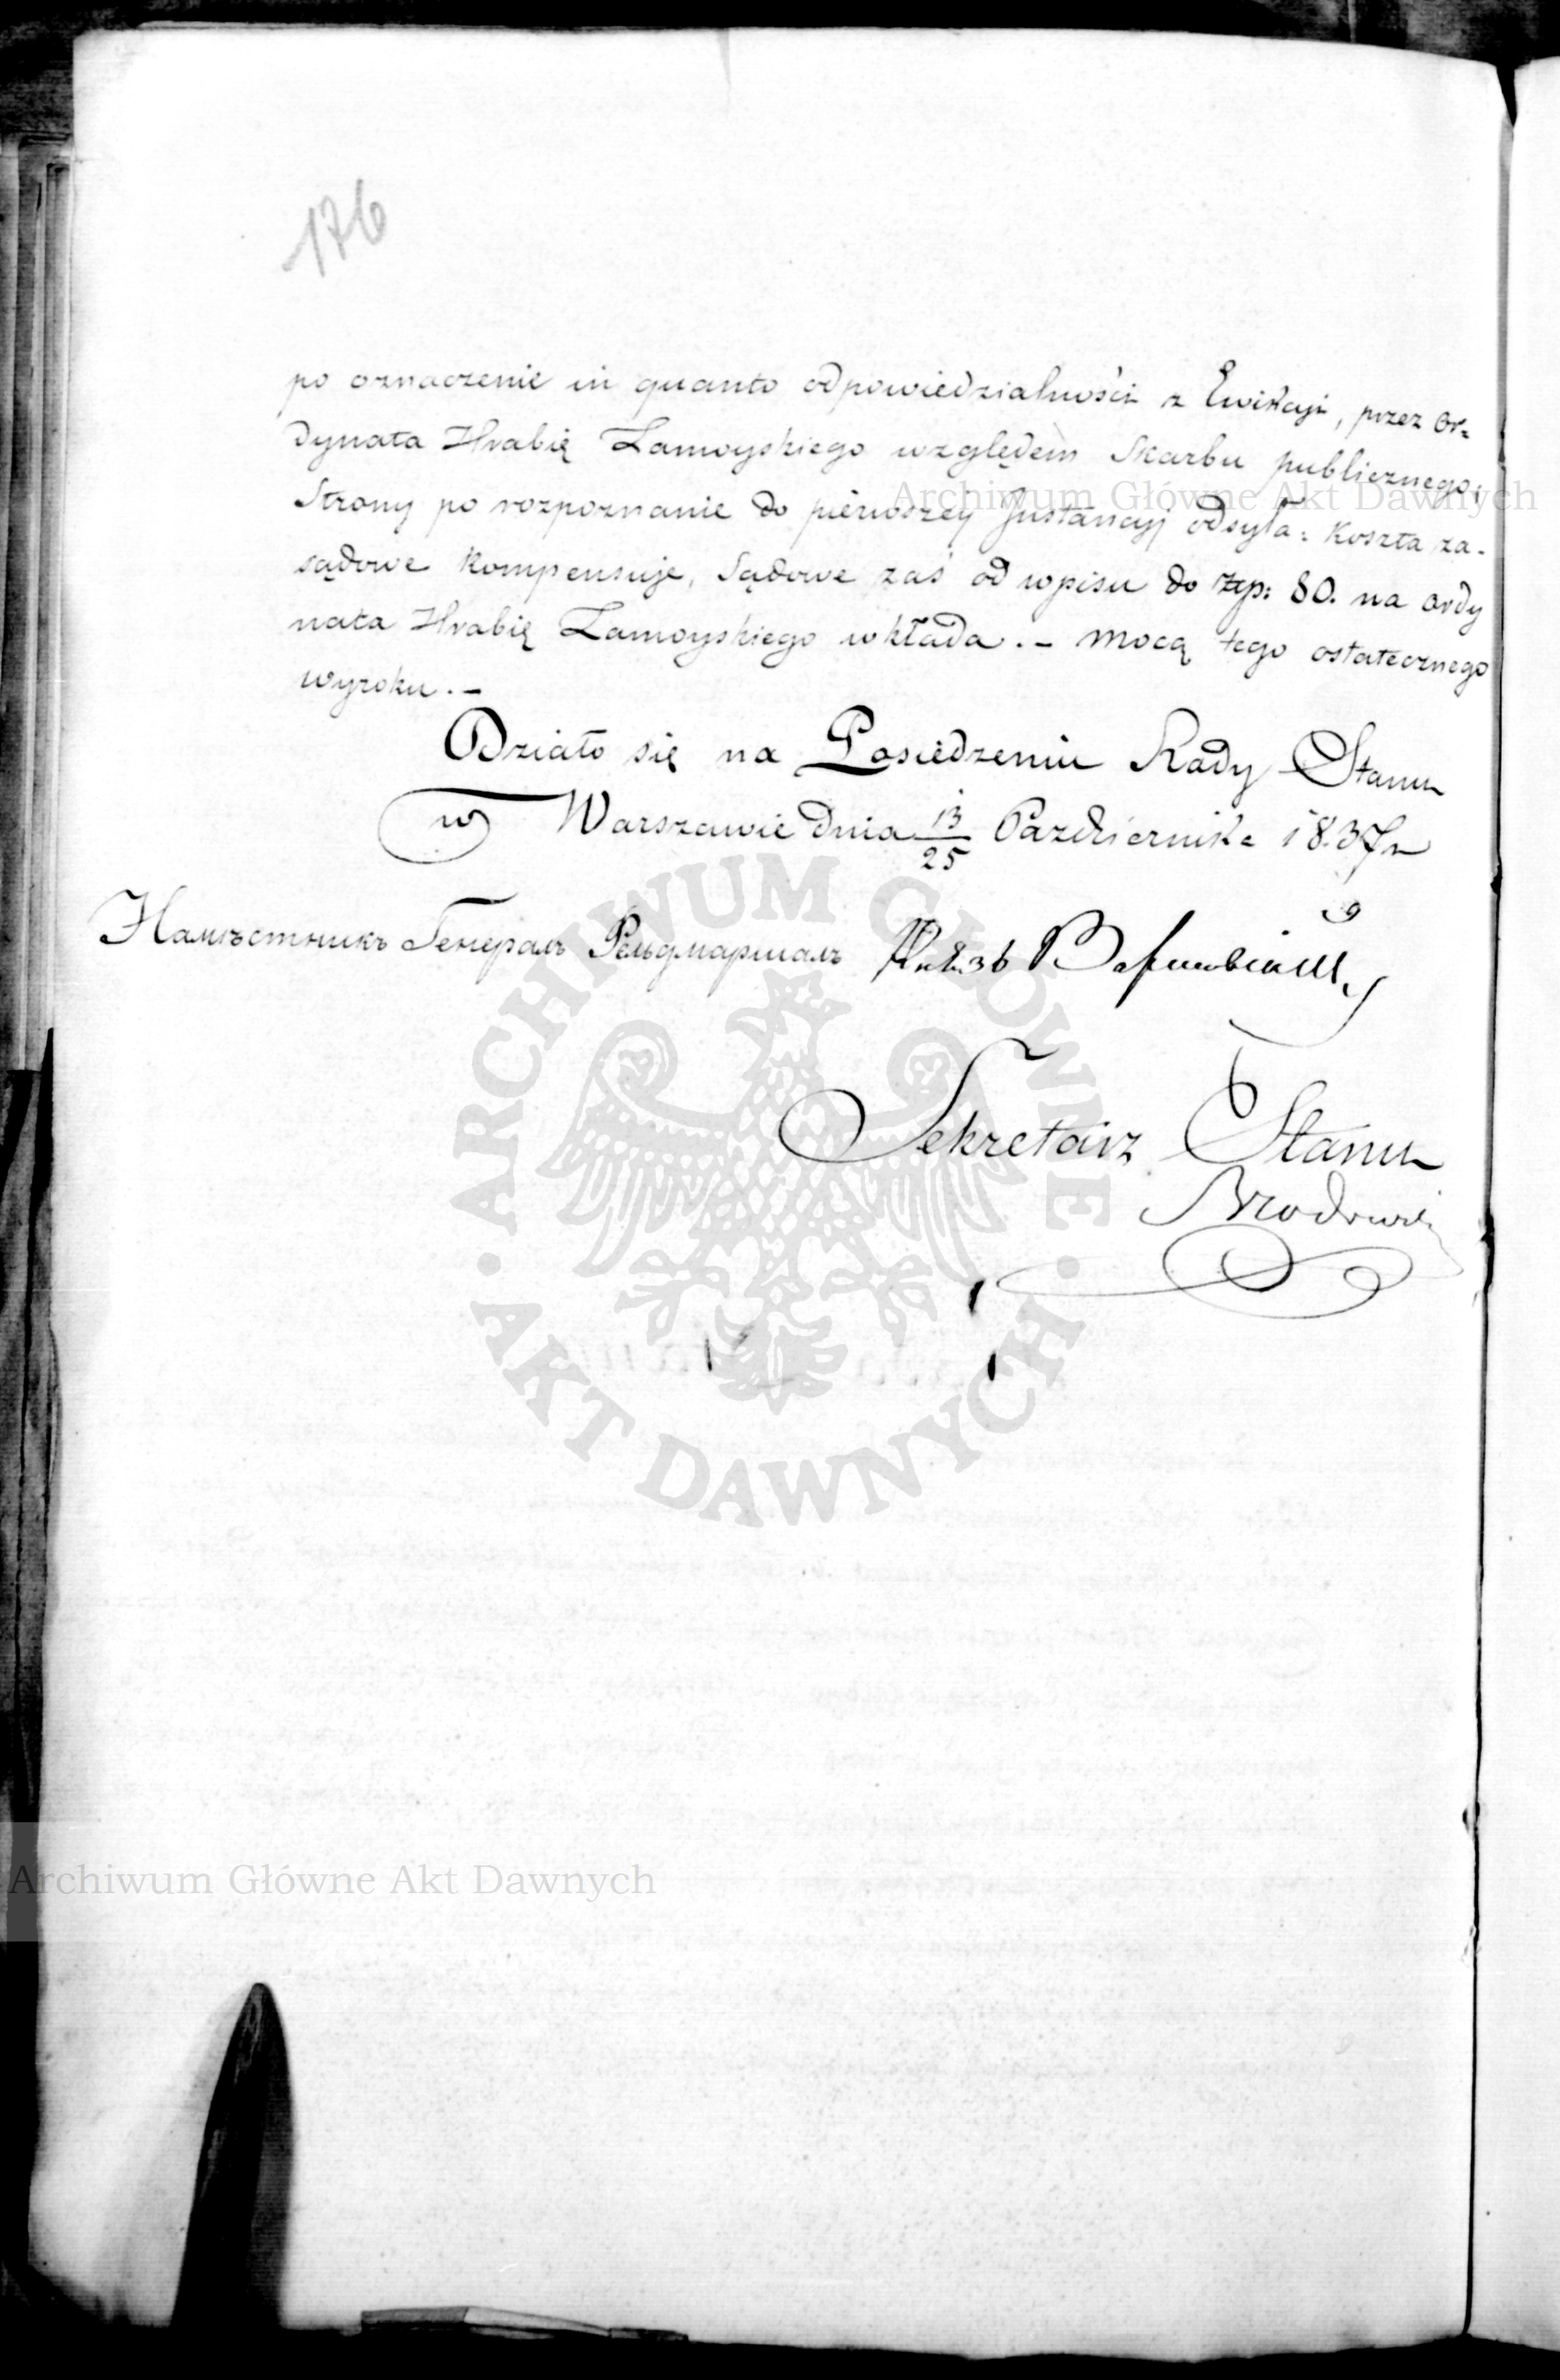 176
po oznaczenie in quanto odpowiedzialności z Ewikcyi, przez Or=
dynata Hrabię Zamoyskiego względem Skarbu publicznego,
Strony po rozpoznanie do pierwszey Instancyj odsyła: koszta za-
sądowe kompensuje, Sądowe zaś od wpisu do Złp: 80. na Ordy
nata Hrabię Zamoyskiego wkłada. – mocą tego ostatecznego
wyroku. –
Działo się na Posiedzeniu Rady Stanu
w Warszawie dnia 13/25 Października 1837 r
Намѣстникъ Генералъ Фельдмаршалъ Князь Варшавскій
Sekretarz Stanu
Brodowski
Archiwum Główne Akt Dawnych
ARCHIWUM GŁÓWNE AKT DAWNYCH
Archiwum Główne Akt Dawnych